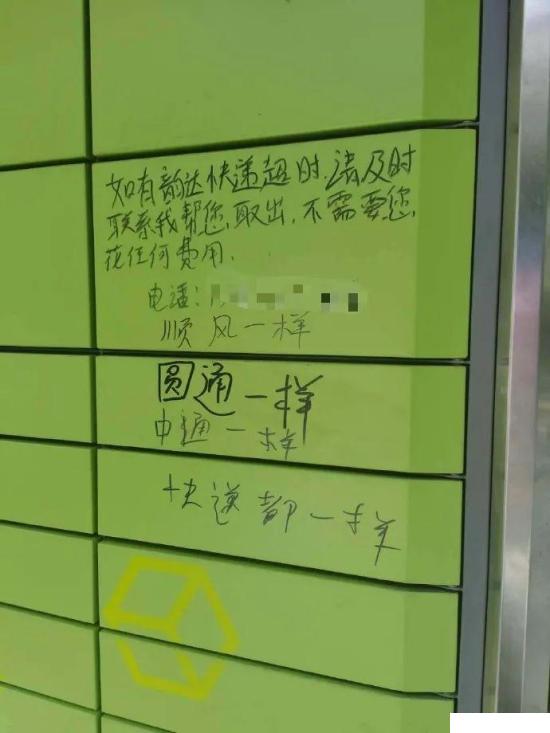 如有韵达快递超时,请及时
联系我帮您取出,不需要您
花任何费用.
电话:
顺风一样
圆通一样
中通一样
快递都一样